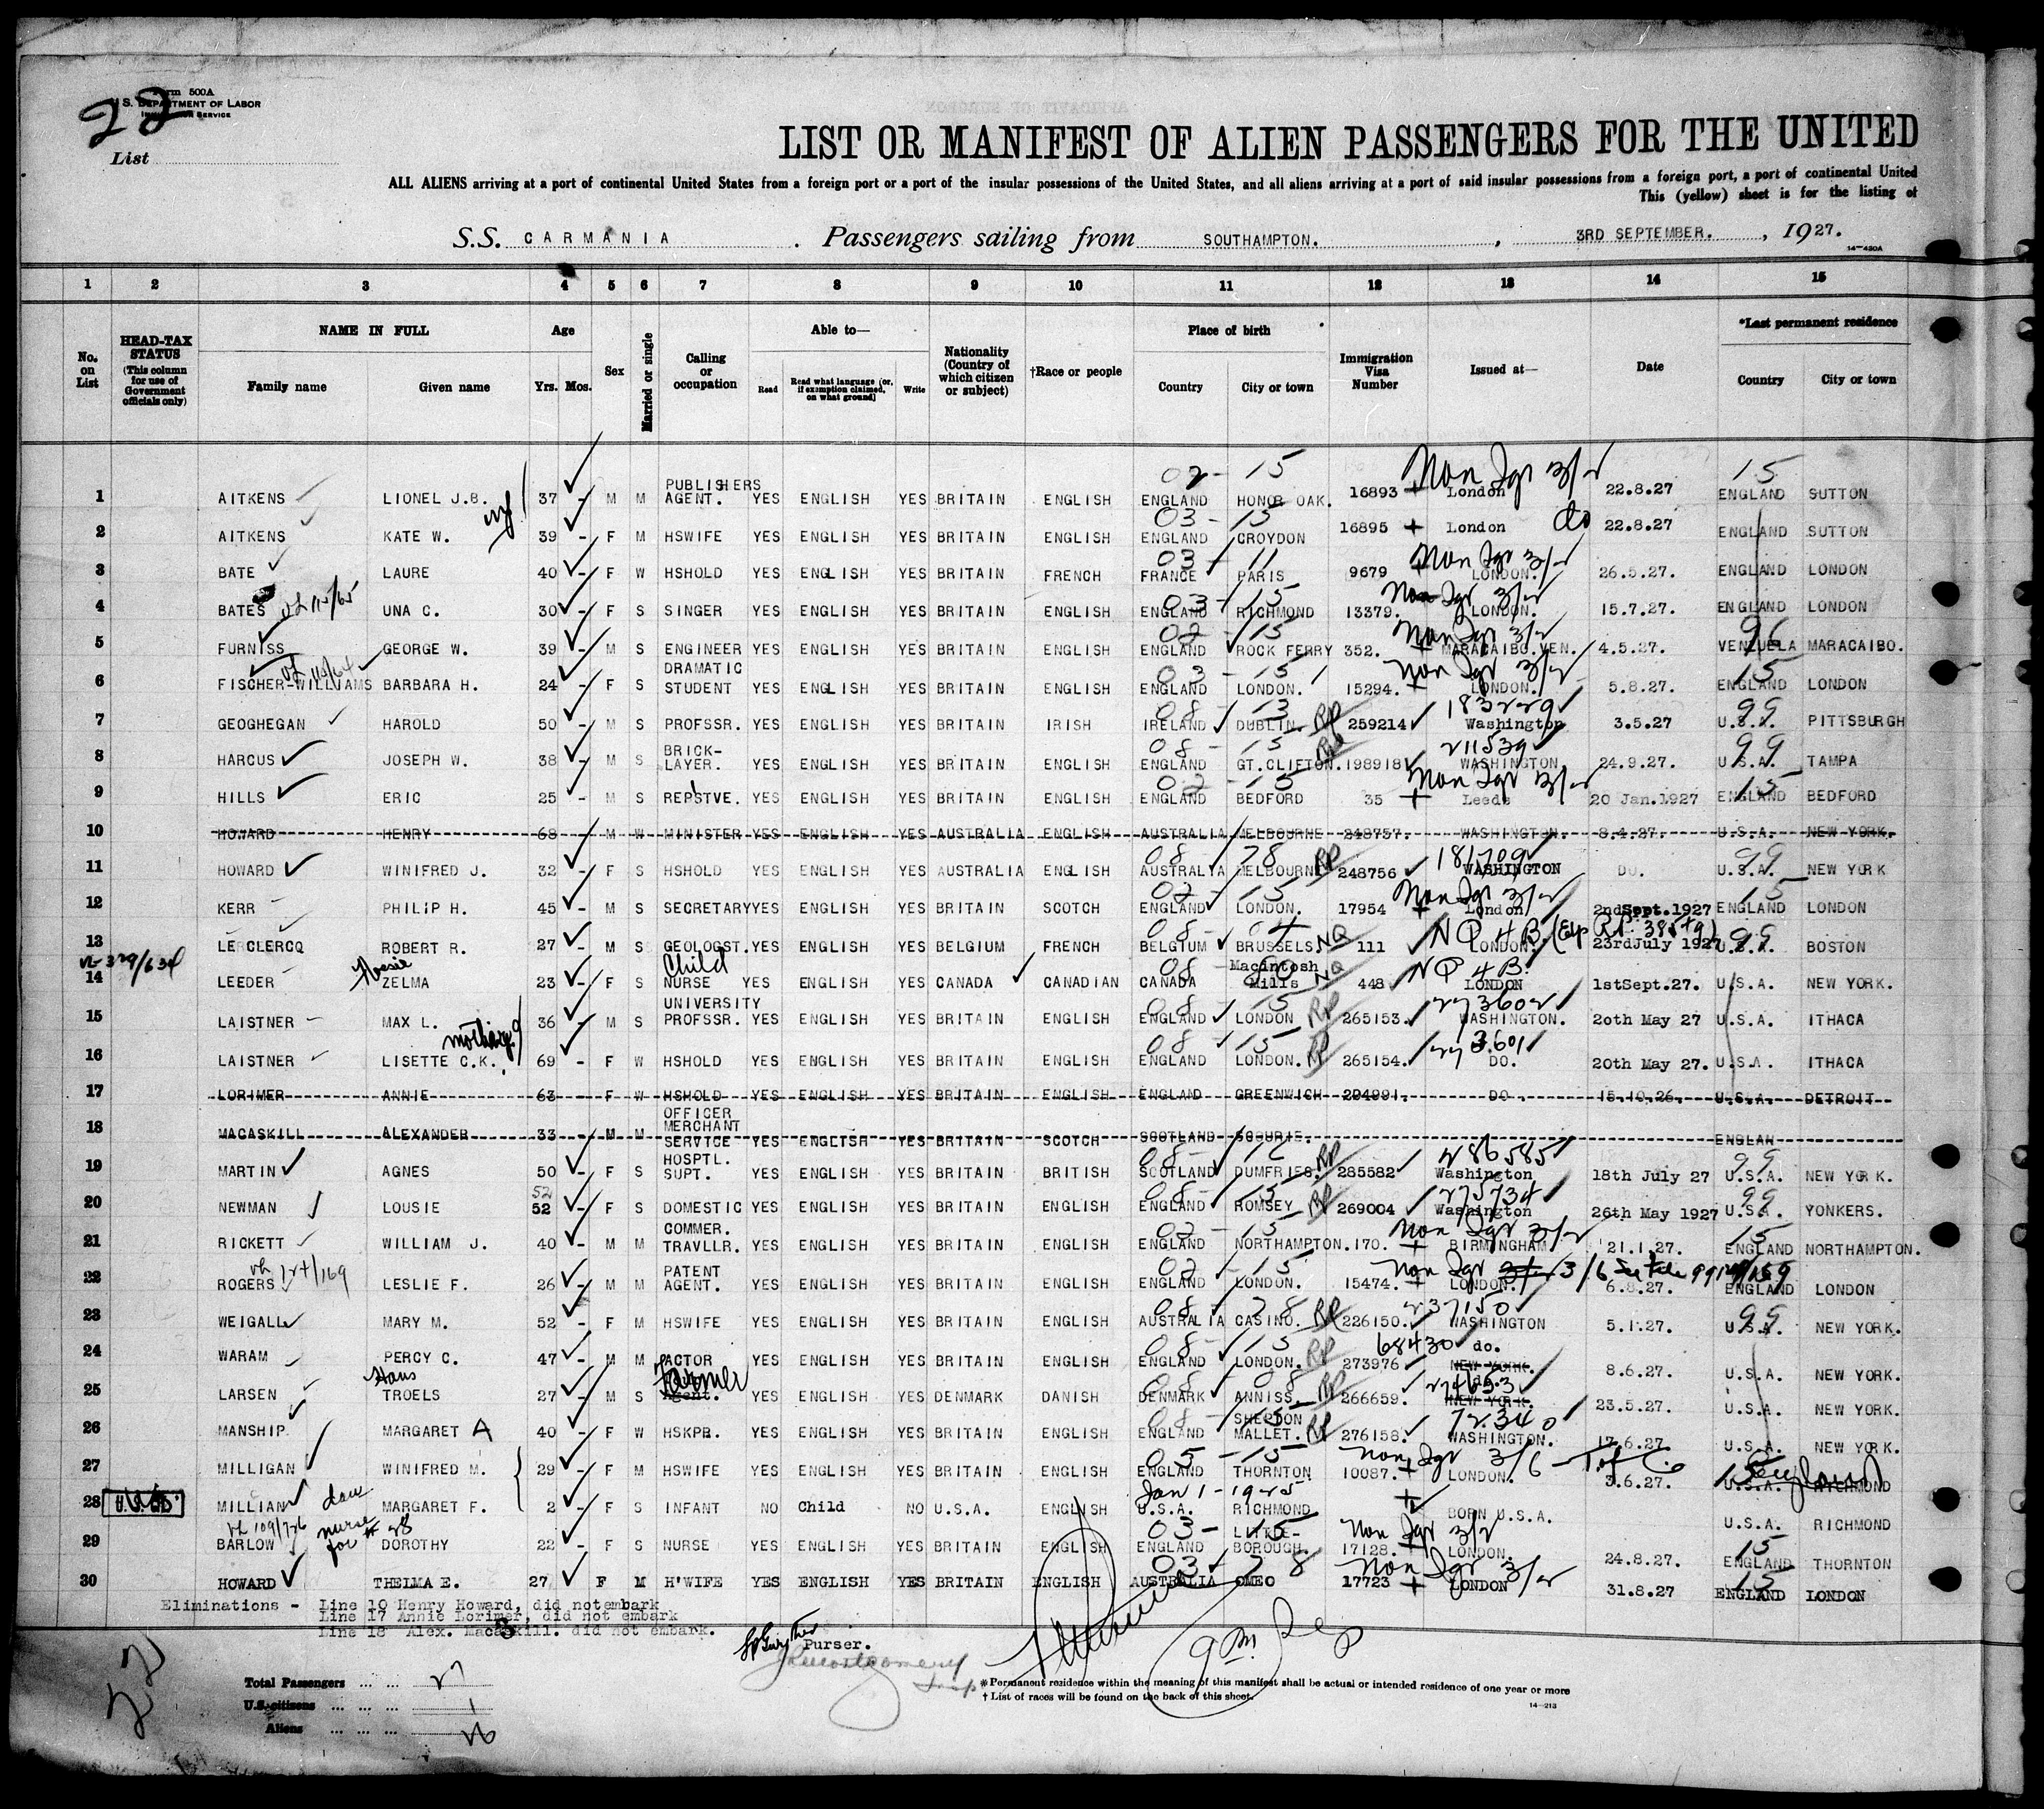 Form 500A
U. S. DEPARTMENT OF LABOR
IMMIGRATION SERVICE
22
List
LIST OR MANIFEST OF ALIEN PASSENGERS FOR THE UNITED
ALL ALIENS arriving at a port of continental United States from a foreign port or a port of the insular possessions of the United States, and all aliens arriving at a port of said insular possessions from a foreign port, a port of continental United
This (yellow) sheet is for the listing of
S.S. CARMANIA. Passengers sailing from SOUTHAMPTON. , 3RD SEPTEMBER. , 1927.
14—430A
1 2 3 4 5 6 7 8 9 10 11 12 13 14 15
No. on List
HEAD-TAX STATUS (This column for use of Government officials only)
NAME IN FULL
Family name Given name
Age
Yrs. Mos.
Sex
Married or single
Calling or occupation
Able to—
Read Read what language (or, if exemption claimed, on what ground) Write
Nationality (Country of which citizen or subject)
†Race or people
Place of birth
Country City or town
Immigration Visa Number
Issued at—
Date
*Last permanent residence
Country City or town
02 - 15 Non Igr 3/2 15
1 AITKENS LIONEL J.B. 37 - M M PUBLISHERS AGENT. YES ENGLISH YES BRITAIN ENGLISH ENGLAND HONOR OAK. 16893 London 22.8.27 ENGLAND SUTTON
03 - 15 do
2 AITKENS KATE W. 39 - F M HSWIFE YES ENGLISH YES BRITAIN ENGLISH ENGLAND CROYDON 16895 London 22.8.27 ENGLAND SUTTON
03 - 11 Non Igr 3/2
3 BATE LAURE 40 - F W HSHOLD YES ENGLISH YES BRITAIN FRENCH FRANCE PARIS 9679 LONDON. 26.5.27. ENGLAND LONDON
03 - 15 Non Igr 3/2
4 BATES UNA C. 30 - F S SINGER YES ENGLISH YES BRITAIN ENGLISH ENGLAND RICHMOND 13379. LONDON. 15.7.27. ENGLAND LONDON
02 - 15 Non Igr 3/2 96
5 FURNISS GEORGE W. 39 - M S ENGINEER YES ENGLISH YES BRITAIN ENGLISH ENGLAND ROCK FERRY 352. MARACAIBO.VEN. 4.5.27. VENZUELA MARACAIBO.
03 - 15 Non Igr 3/2 15
6 FISCHER-WILLIAMS BARBARA H. 24 - F S DRAMATIC STUDENT YES ENGLISH YES BRITAIN ENGLISH ENGLAND LONDON. 15294. LONDON. 5.8.27. ENGLAND LONDON
08 - 13 RP 183229 99
7 GEOGHEGAN HAROLD 50 - M S PROFSSR. YES ENGLISH YES BRITAIN IRISH IRELAND DUBLIN. 259214 Washington 3.5.27 U.S.A. PITTSBURGH
08 - 15 RP 211539 99
8 HARCUS JOSEPH W. 38 - M S BRICK-LAYER. YES ENGLISH YES BRITAIN ENGLISH ENGLAND GT.CLIFTON. 198918 WASHINGTON 24.9.27. U.S.A. TAMPA
02 - 15 Non Igr 3/2 15
9 HILLS ERIC 25 - M S REPSTVE. YES ENGLISH YES BRITAIN ENGLISH ENGLAND BEDFORD 35 Leeds 20 Jan.1927 ENGLAND BEDFORD
10 HOWARD HENRY 68 - M W MINISTER YES ENGLISH YES AUSTRALIA ENGLISH AUSTRALIA MELBOURNE 248757. WASHINGTON. 8.4.27. U.S.A. NEW YORK.
08 78 RP 181709 99
11 HOWARD WINIFRED J. 32 - F S HSHOLD YES ENGLISH YES AUSTRALIA ENGLISH AUSTRALIA MELBOURNE 248756 WASHINGTON DO. U.S.A. NEW YORK
02 - 15 Non Igr 3/2 15
12 KERR PHILIP H. 45 - M S SECRETARY YES ENGLISH YES BRITAIN SCOTCH ENGLAND LONDON. 17954 London 2nd Sept.1927 ENGLAND LONDON
08 - NQ NQ 4 B. 99
13 LERCLERCQ ROBERT R. 27 - M S GEOLOGST. YES ENGLISH YES BELGIUM FRENCH BELGIUM BRUSSELS 111 LONDON. 23rd July 1927 U.S.A. BOSTON
Child Macintosh NQ NQ 4 B.
14 LEEDER ZELMA 23 - F S NURSE YES ENGLISH YES CANADA CANADIAN CANADA Mills 448 LONDON 1st Sept.27. U.S.A. NEW YORK.
08 - 15 RP 273602
15 LAISTNER MAX L. 36 - M S UNIVERSITY PROFSSR. YES ENGLISH YES BRITAIN ENGLISH ENGLAND LONDON 265153. WASHINGTON. 20th May 27 U.S.A. ITHACA
mother 08 15 RP 273601
16 LAISTNER LISETTE C.K. 69 - F W HSHOLD YES ENGLISH YES BRITAIN ENGLISH ENGLAND LONDON. 265154. DO. 20th May 27. U.S.A. ITHACA
17 LORIMER ANNIE 63 - F W HSHOLD YES ENGLISH YES BRITAIN ENGLISH ENGLAND GREENWICH 294991. DO 15.10.26. U.S.A. DETROIT
18 MACASKILL ALEXANDER 33 - M M OFFICER MERCHANT SERVICE YES ENGLISH YES BRITAIN SCOTCH SCOTLAND SCOURIE. ENGLAN
08 - 16 RP 286585 99
19 MARTIN AGNES 50 - F S HOSPTL. SUPT. YES ENGLISH YES BRITAIN BRITISH SCOTLAND DUMFRIES. 285582 Washington 18th July 27 U.S.A. NEW YORK.
52 08 - 15 RP 275734 99
20 NEWMAN LOUSIE 52 - F S DOMESTIC YES ENGLISH YES BRITAIN ENGLISH ENGLAND ROMSEY 269004 Washington 26th May 1927 U.S.A. YONKERS.
02 - 15 Non Igr 3/2 15
21 RICKETT WILLIAM J. 40 - M M COMMER. TRAVLLR. YES ENGLISH YES BRITAIN ENGLISH ENGLAND NORTHAMPTON. 170. BIRMINGHAM 21.1.27. ENGLAND NORTHAMPTON.
02 - 15 Non Igr 3/6 See File
22 ROGERS LESLIE F. 26 - M M PATENT AGENT. YES ENGLISH YES BRITAIN ENGLISH ENGLAND LONDON. 15474. LONDON. 6.8.27. ENGLAND LONDON
08 78 RP 237150 99
23 WEIGALL MARY M. 52 - F M HSWIFE YES ENGLISH YES BRITAIN ENGLISH AUSTRALIA CASINO. 226150. WASHINGTON 5.1.27. U.S.A. NEW YORK.
08 - 15 RP 68430 do.
24 WARAM PERCY C. 47 - M M ACTOR YES ENGLISH YES BRITAIN ENGLISH ENGLAND LONDON. 273976 NEW YORK. 8.6.27. U.S.A. NEW YORK.
Hans Farmer 08 - 08 RP do.
25 LARSEN TROELS 27 - M S Agent. YES ENGLISH YES DENMARK DANISH DENMARK ANNISS. 266659. NEW YORK. 23.5.27. U.S.A. NEW YORK.
08 - 15 SHEPDON RP 72340
26 MANSHIP MARGARET A 40 - F W HSKPR. YES ENGLISH YES BRITAIN ENGLISH ENGLAND MALLET. 276158. WASHINGTON. 17.6.27 U.S.A. NEW YORK.
05 - 15 Non Igr 3/6 15 England
27 MILLIGAN WINIFRED M. 29 - F M HSWIFE YES ENGLISH YES BRITAIN ENGLISH ENGLAND THORNTON 10087. LONDON. 3.6.27. U.S.A. RICHMOND
Jan 1 - 1925
28 MILLIAN dau MARGARET F. 2 - F S INFANT NO Child NO U.S.A. ENGLISH U.S.A. RICHMOND BORN U.S.A. U.S.A. RICHMOND
nurse for # 28 03 - 15 Non Igr 3/2 15
29 BARLOW DOROTHY 22 - F S NURSE YES ENGLISH YES BRITAIN ENGLISH ENGLAND LITTLE-BOROUGH. 17128. LONDON. 24.8.27. ENGLAND THORNTON
03 78 Non Igr 3/2 15
30 HOWARD THELMA E. 27 F M H'WIFE YES ENGLISH YES BRITAIN ENGLISH AUSTRALIA OMEO 17723 LONDON 31.8.27 ENGLAND LONDON
Eliminations - Line 10 Henry Howard, did not embark
Line 17 Annie Lorimer, did not embark
Line 18 Alex. Macaskill. did not embark.
3
Purser.
22
Total Passengers ... ... 27
U.S. citizens ... ... ... 1
Aliens ... ... ... 26
*Permanent residence within the meaning of this manifest shall be actual or intended residence of one year or more
† List of races will be found on the back of this sheet.
14—213